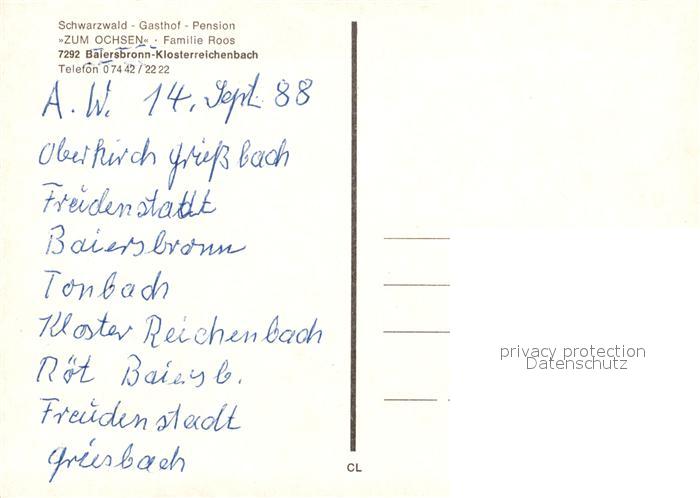 Schwarzwald - Gasthof - Pension
»ZUM OCHSEN« · Familie Roos
7292 Baiersbronn-Klosterreichenbach
Telefon 0 74 42 / 22 22
A. W. 14. Sept. 88
Oberkirch Grießbach
Freudenstadt
Baiersbronn
Tonbach
Kloster Reichenbach
Röt Baiersb.
Freudenstadt
Griesbach
CL
privacy protection
Datenschutz